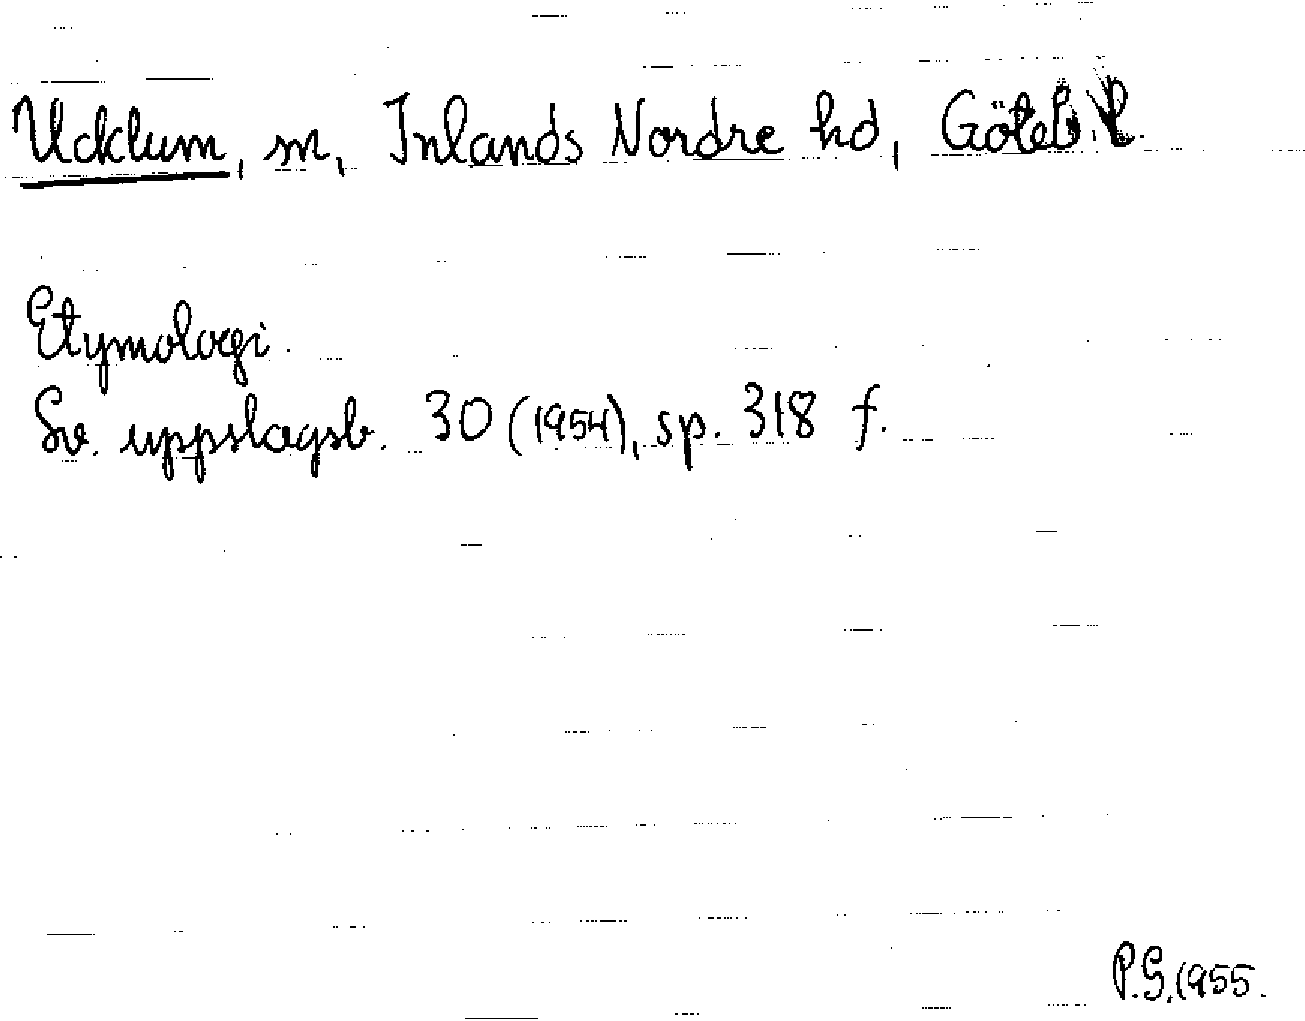 Ucklum, sn, Inlands Nordre hd, Göteb. l.
Etymologi.
Sv. uppslagsb. 30 (1954), sp. 318 f.
P.G. 1955.